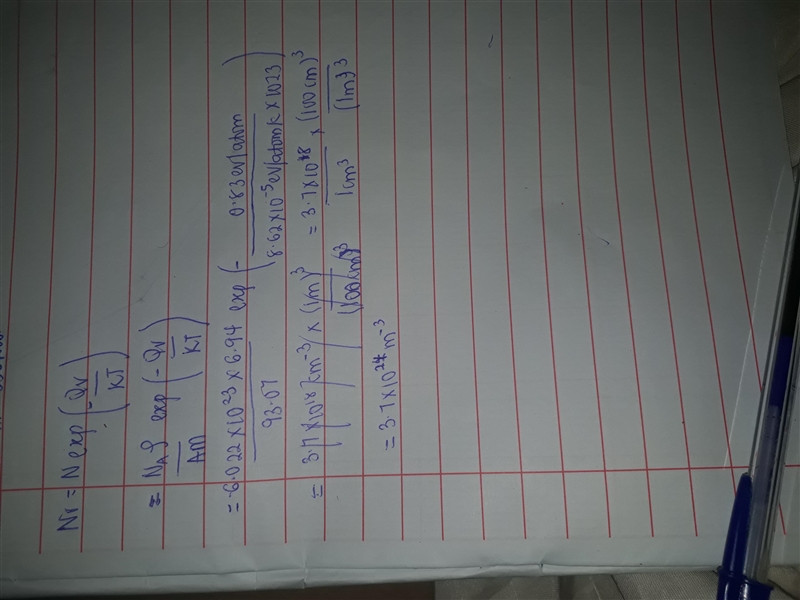 Nv = N exp (-Qv/KT)
= NAρ/AM exp (-Qv/KT)
= 6.022 x 10^23 x 6.94 / 93.07 exp (- 0.83 eV/atom / 8.62 x 10^-5 eV/atom K x 1023)
= 3.7 x 10^18 cm^-3 x (1m)^3 / (100cm)^3 = 3.7 x 10^18 / 1cm^3 x (100cm)^3 / (1m)^3
= 3.7 x 10^24 m^-3